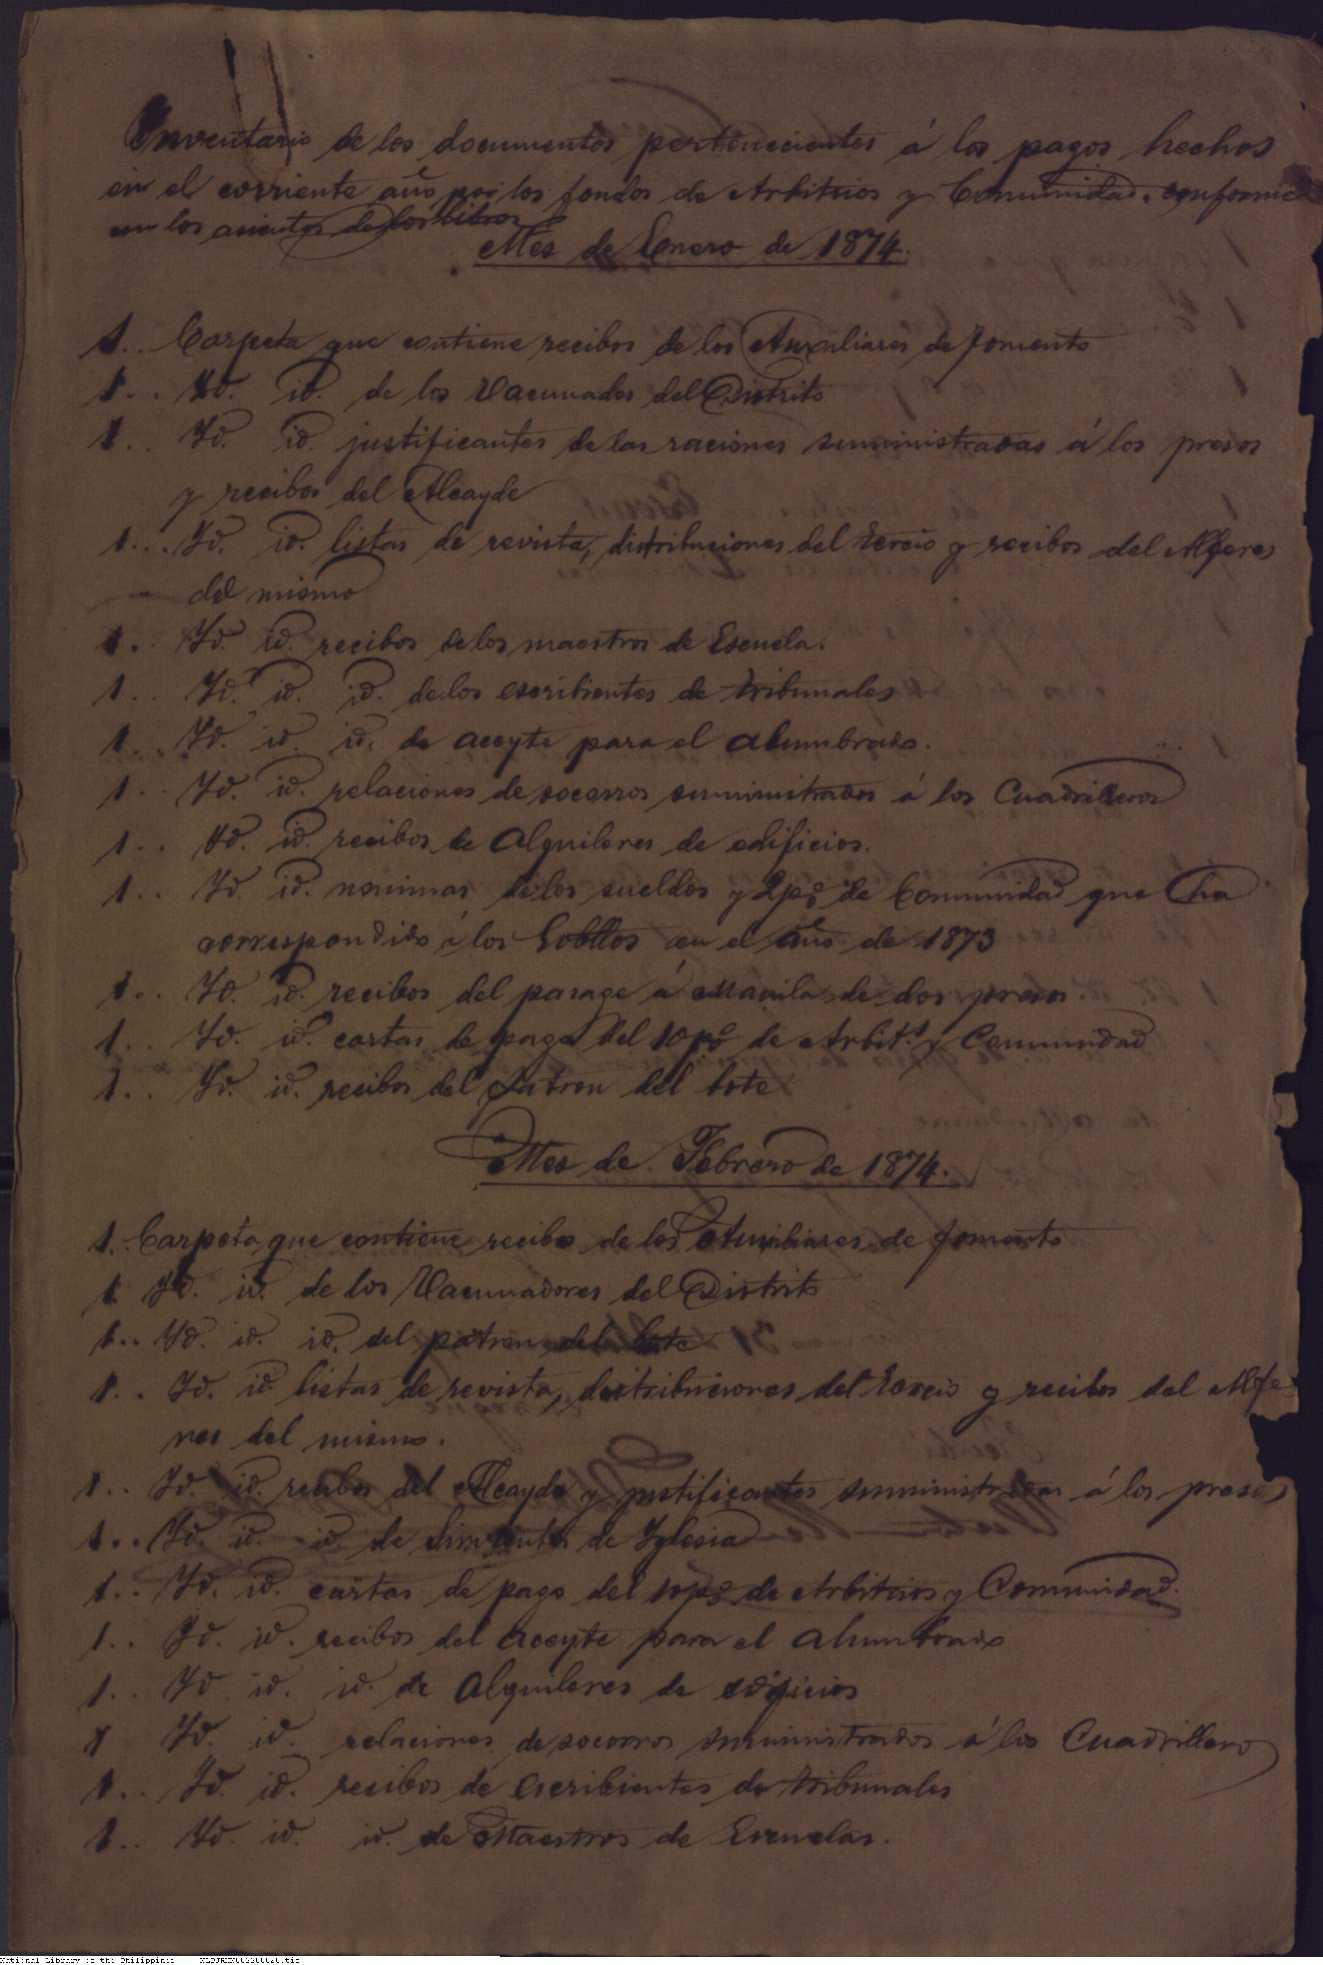 Inventario de los documentos pertenecientes á los pagos hechos
en el corriente año por los fondos de Arbitrios y Comunidad, conforme
con los asientos de los libros
Mes de Enero de 1874.
1.. Carpeta que contiene recibos de los Auxiliares de fomento
1.. Yd. id. de los Vacunados del Distrito
1.. Yd. id justificantes de las raciones suministradas á los presos
y recibos del Alcayde
1... Yd. id. listas de revista, distribuciones del tercio y recibos del Alferes
del mismo
1.. Yd. id. recibos de los maestros de Escuela.
1.. Yd. id. id. de los escribientes de tribunales
1.. Yd. id. id. de aceyte para el alumbrado.
1.. Yd. id. relaciones de socorros suministrados á los Cuadrilleros
1.. Yd. id. recibos de alquileres de edificios.
1.. Yd id. nominas de los sueldos y 2 p% de Comunidad que ha
correspondido á los en el año de 1873
1.. Yd. id. recibos del pasage á Manila de dos presos
1.. Yd. id. cartas de pago del 10 p% de Arbits. y Comunidad
1.. Yd. id. recibos del Patron del bote
Mes de Febrero de 1874.
1. Carpeta que contiene recibos de los Auxiliares de fomento
1 Yd. id. de los Vacunadores del Distrito
1.. Yd. id. id. del patron del bote
1.. Yd. id listas de revista, distribuciones del tercio y recibos del Alfe
res del mismo.
1.. Yd. id. recibos del Alcayde y justificantes suministradas á los presos
1... Yd. id. id. de Sirvientes de Yglesia
1.. Yd. id. cartas de pago del 10 p% de Arbitrios y Comunidad.
1.. Yd. id. recibos del aceyte para el alumbrado
1.. Yd id. id. de alquileres de edificios
1 Yd. id. relaciones de socorros suministrados á los Cuadrilleros
1.. Yd. id. recibos de escribientes de tribunales
1.. Yd. id. id. de Maestros de Escuelas.
National Library of the Philippines